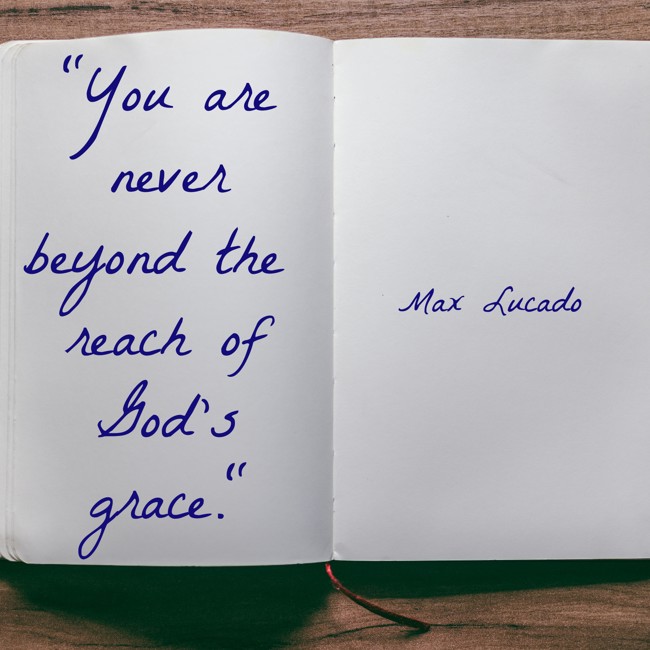 "You are
never
beyond the
reach of
God's
grace."
Max Lucado